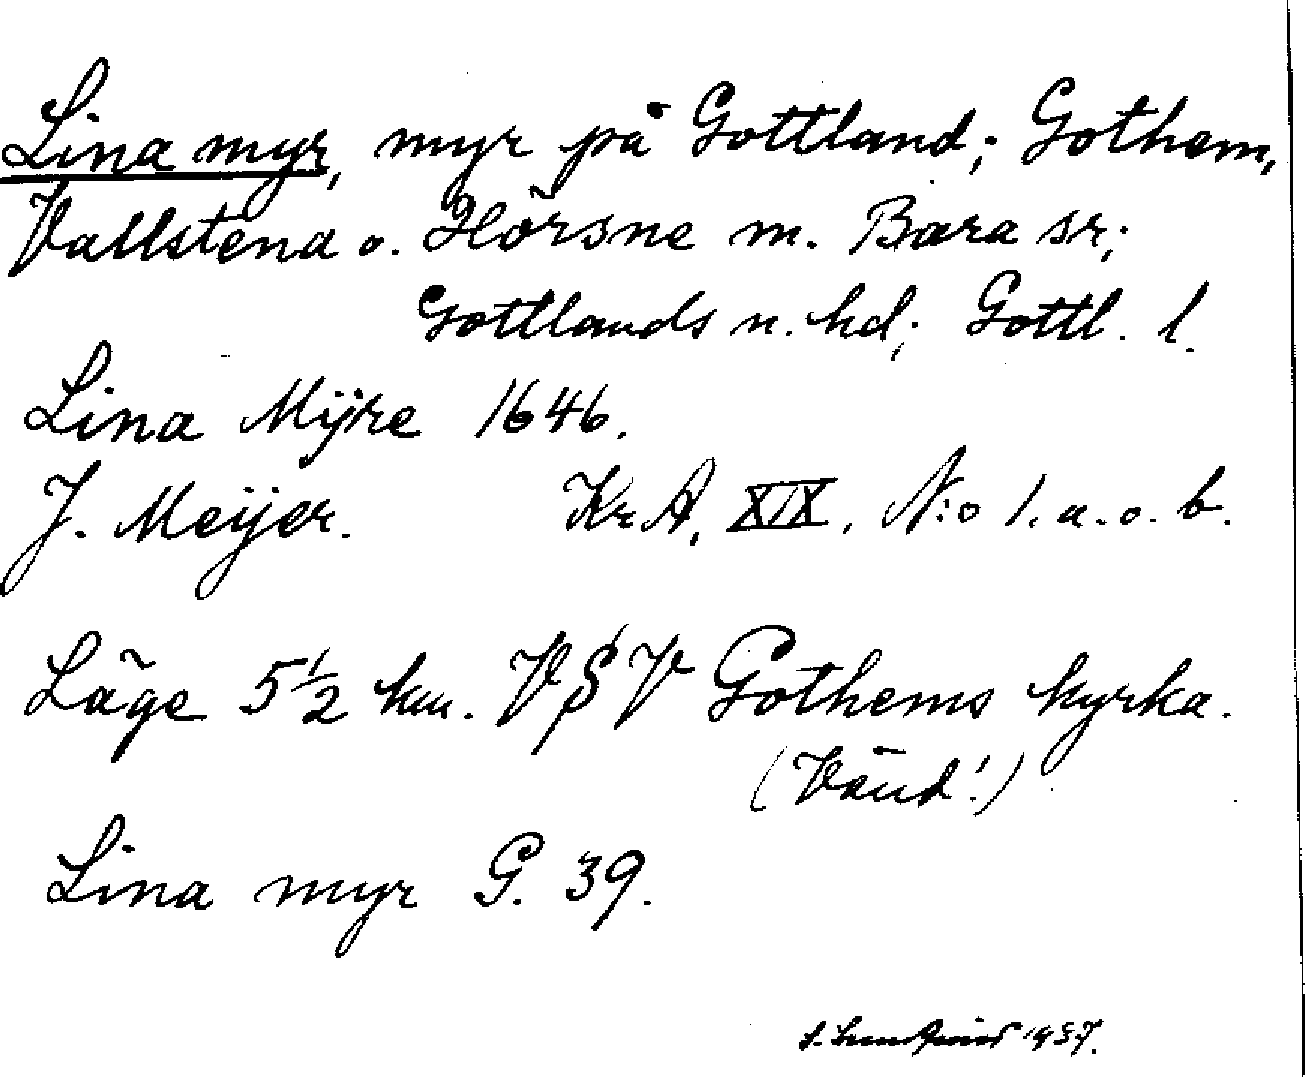 Lina myr, myr på Gottland; Gothem,
Vallstena o. Hörsne m. Bara sr;
Gottlands n. hd; Gottl. l.
Lina Mÿre 1646.
J. Meijer. KrA, XIX, N:o 1. a. o. b.
Läge 5½ km. VSV Gothems kyrka.
(Vänd!)
Lina myr G. 39.
1937.